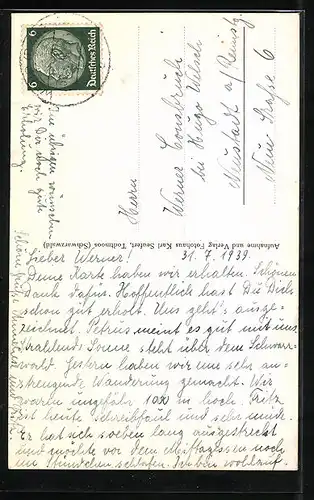 6 Deutsches Reich 6
Im übrigen wünschen
wir Dir noch gute
Erholung.
Herrn
Werner Consbruch
bei Hugo Walsch
Neustadt a/Rennstg.
Neue Straße 6
Aufnahme und Verlag Fotohaus Karl Seufert, Todtmoos (Schwarzwald)
31.7.1939.
Lieber Werner!
Deine Karte haben wir erhalten. Schönen
Dank dafür. Hoffentlich hast Du Dich
schon gut erholt. Uns geht's ausge-
zeichnet. Petrus meint es gut mit uns
strahlende Sonne steht über dem Schwarz-
wald. Gestern haben wir eine sehr an-
strengende Wanderung gemacht. Wir
waren ungefähr 1000 m hoch. Fritz
ist heute schreibfaul und sehr müde.
Er hat sich soeben lang ausgestreckt
und möchte vor dem Mittagessen noch
ein Stündchen schlafen.
Schöne Grüße Anneliese und Fritz